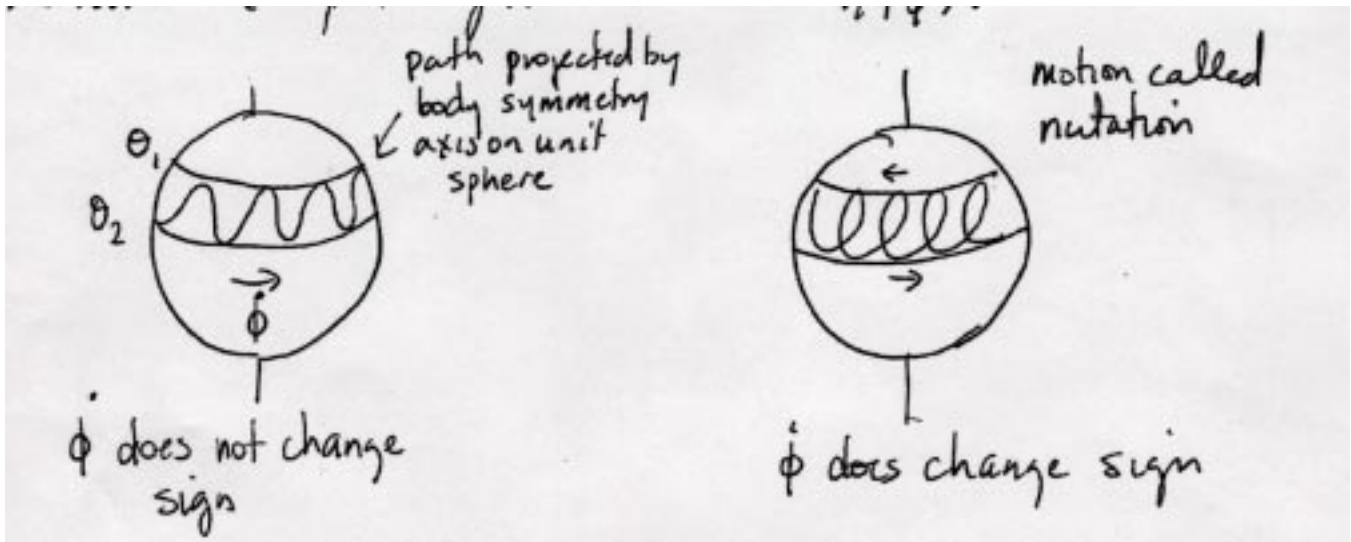 path projected by
body symmetry
axis on unit
sphere
θ₁
θ₂
ϕ̇
ϕ̇ does not change
sign
motion called
nutation
ϕ̇ does change sign